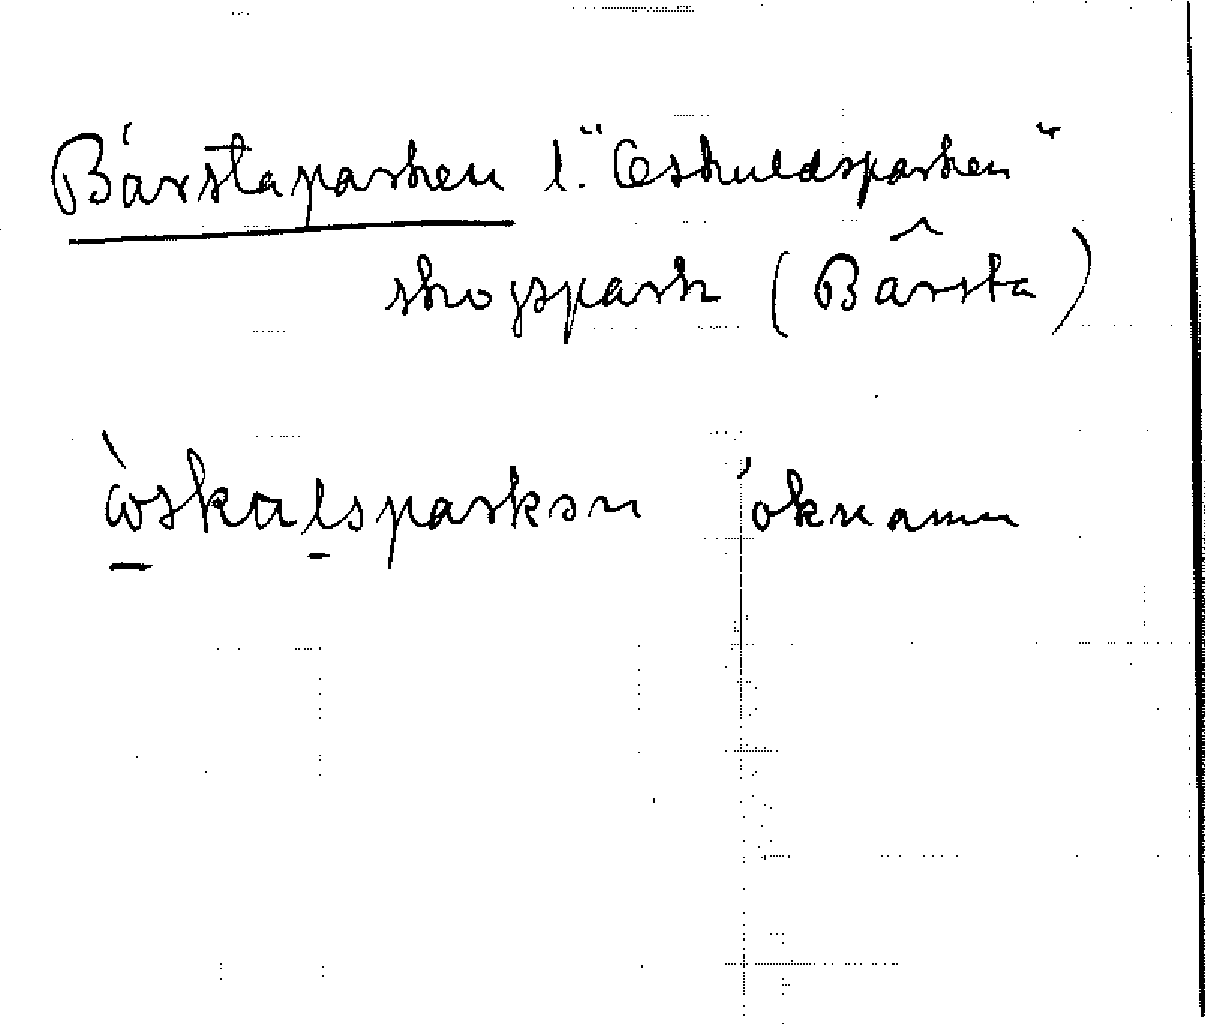 Bárstaparken l. "Oskuldsparken"
skogspark (Bârsta)
òskalsparkən öknamn